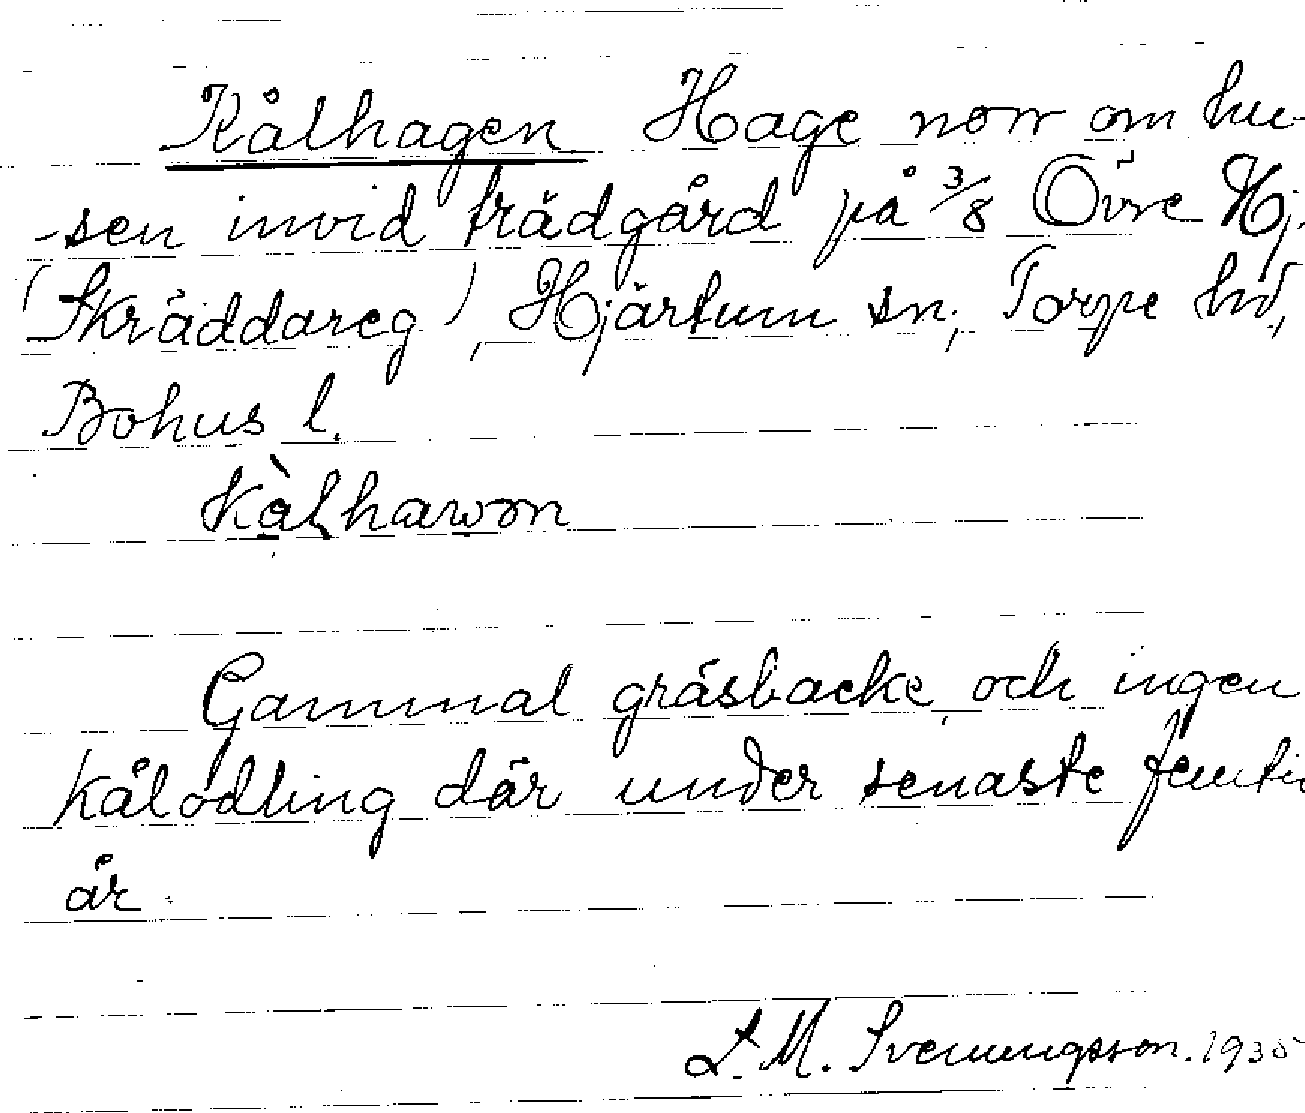 Kålhagen Hage norr om hu-
-sen invid trädgård på 3/8 Övre Hj.
(Skräddareg), Hjärtum sn, Torpe hd,
Bohus l.
Gammal gräsbacke och ingen
kålodling där under senaste femtio
år.
L. M. Svenungsson. 1935